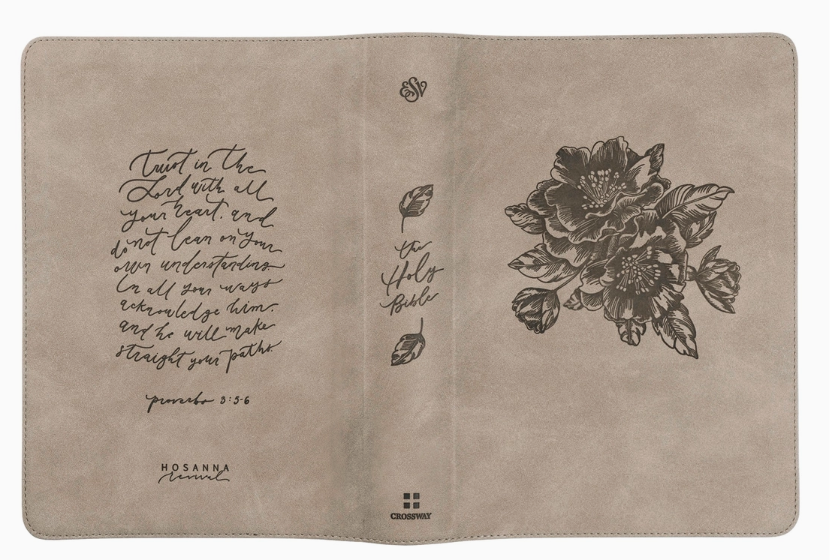 Trust in the
Lord with all
your heart, and
do not lean on your
own understanding.
In all your ways
acknowledge him,
and he will make
straight your paths.
proverbs 3:5-6
HOSANNA
revival
ESV
the
Holy
Bible
CROSSWAY